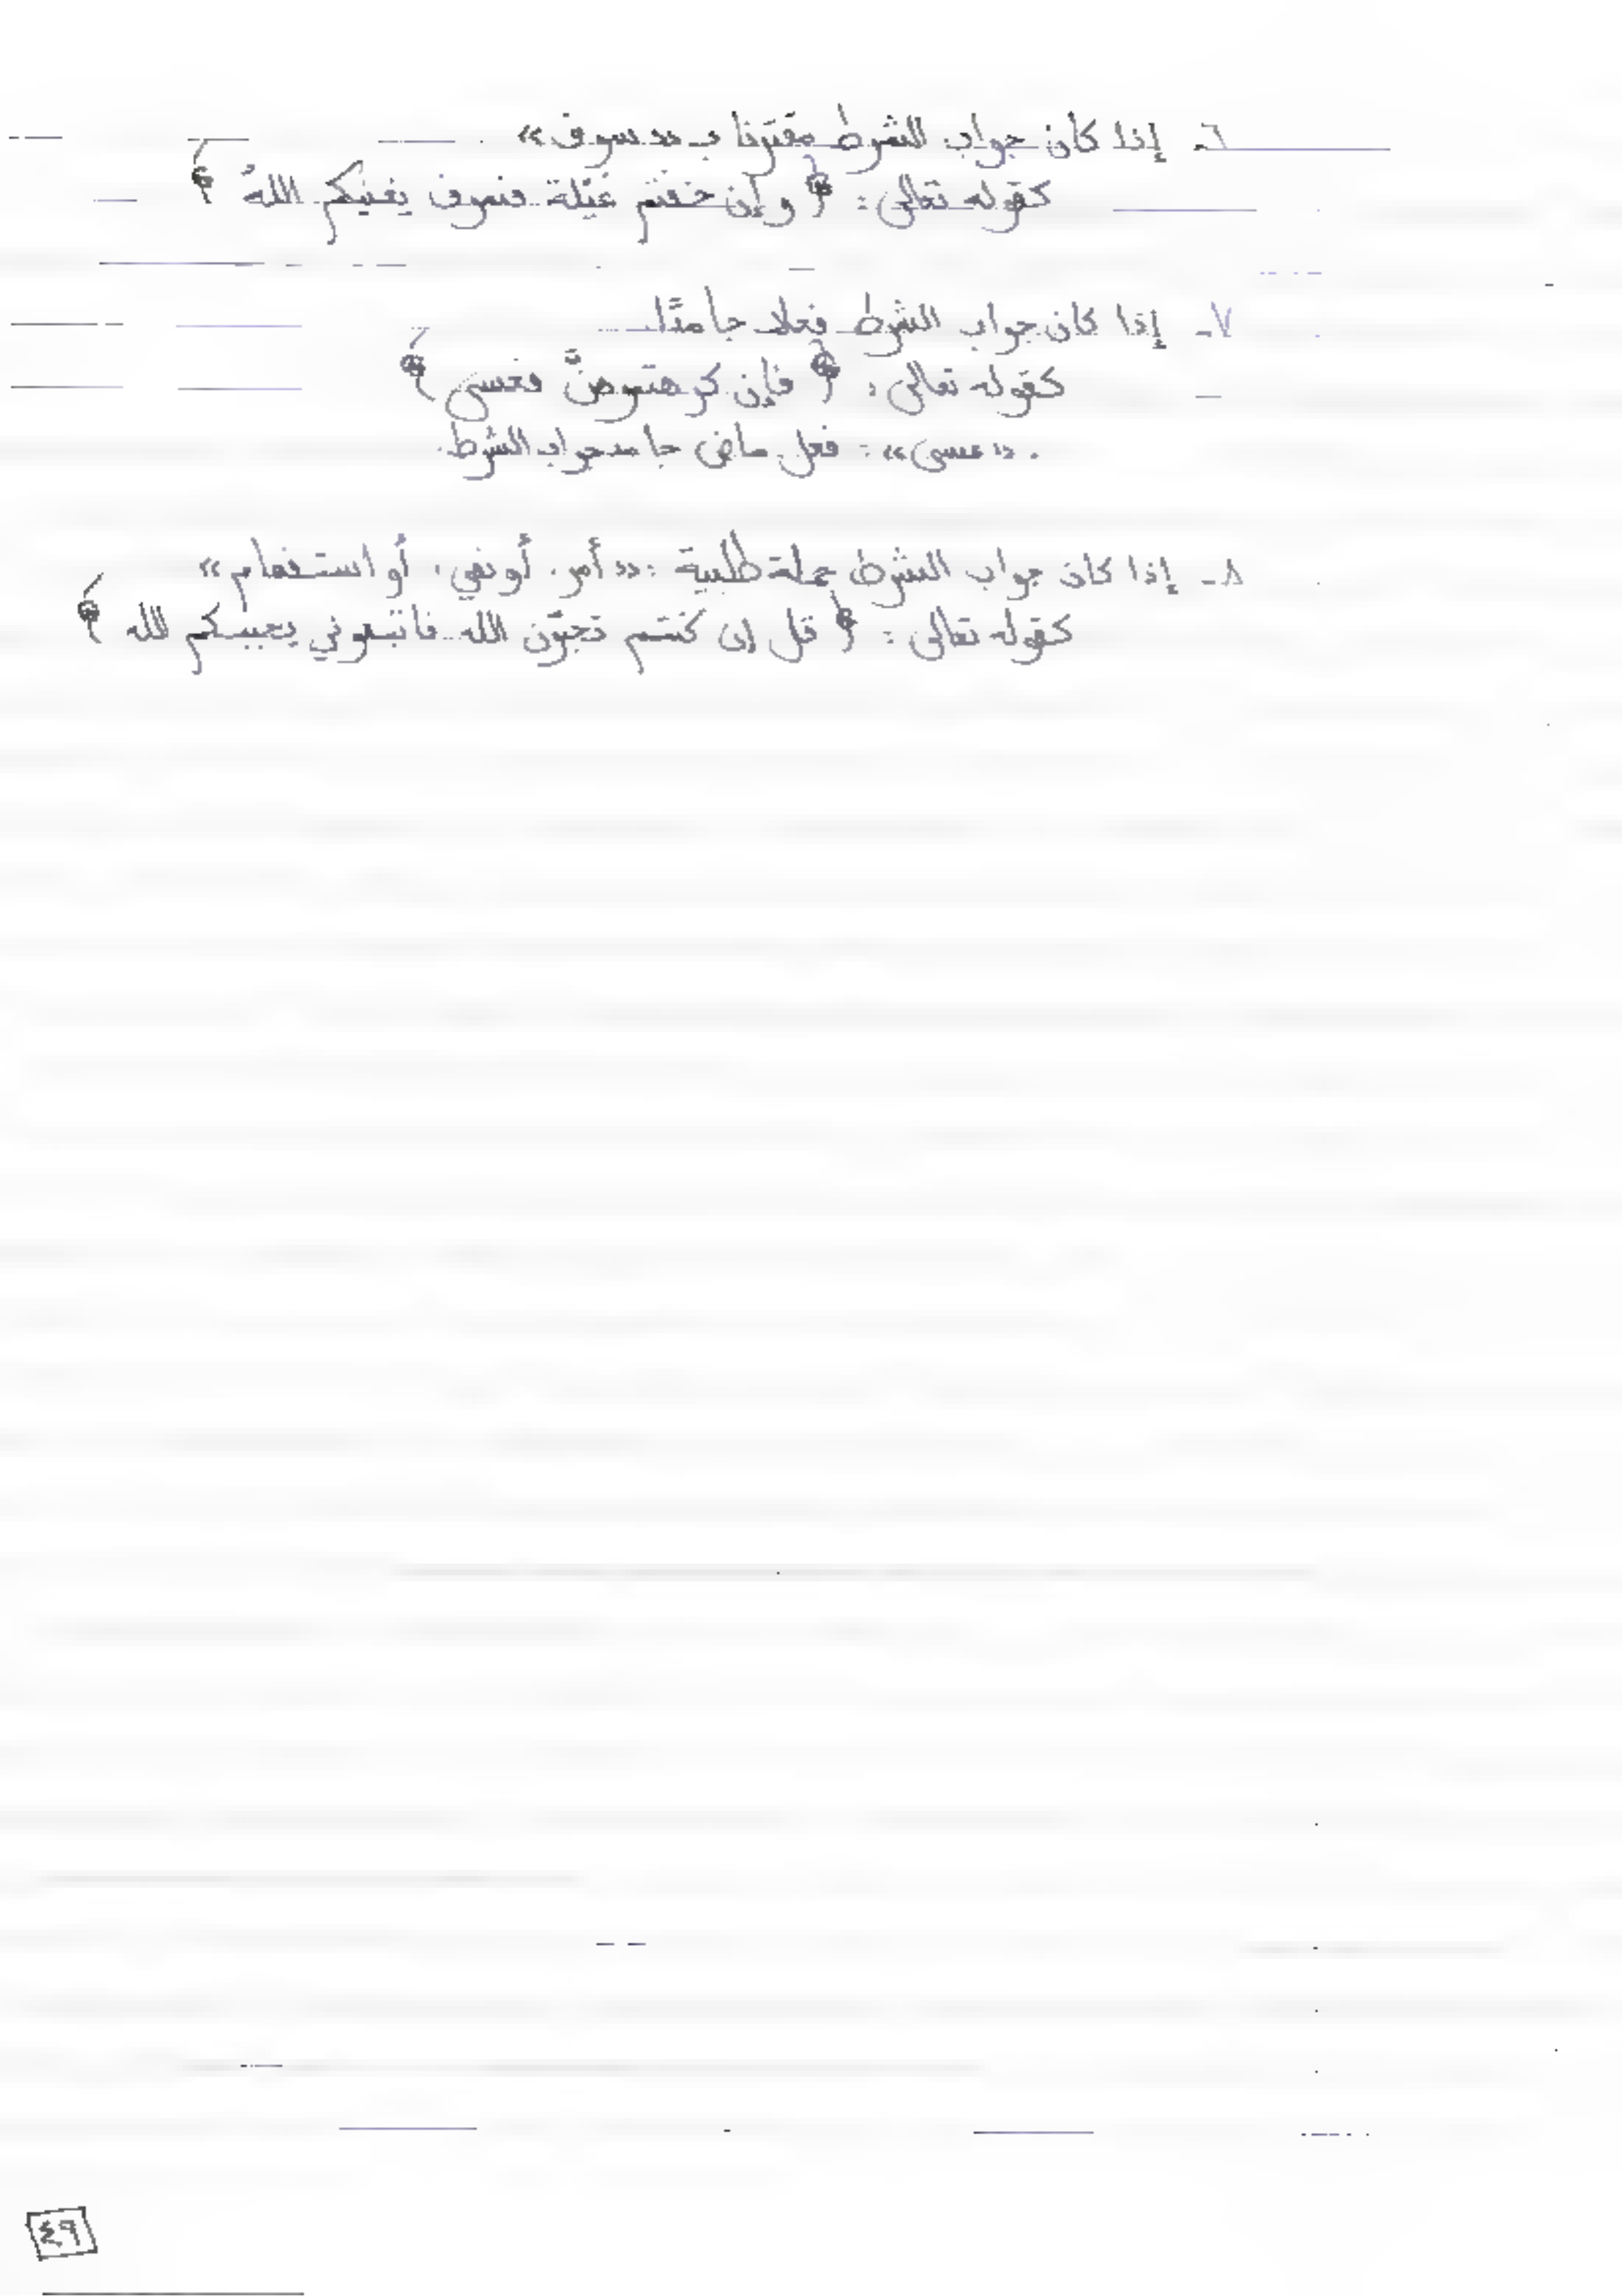 ٦- إذا كان جواب الشرط مقترنا بـ «سوف»
كقوله تعالى: ﴿ وإن خفتم عَيْلة فسوف يغنيكم اللهُ ﴾
٧- إذا كان جواب الشرط فعلا جامدًا
كقوله تعالى: ﴿ فإن كرهتموهنَّ فعسى ﴾
. «عسى»: فعل ماض جامد جواب الشرط.
٨- إذا كان جواب الشرط جملة طلبية: «أمر، أو نفي، أو استفهام»
كقوله تعالى: ﴿ قل إن كنتم تحبّون الله فاتبعوني يحببكم لله ﴾
٤٩